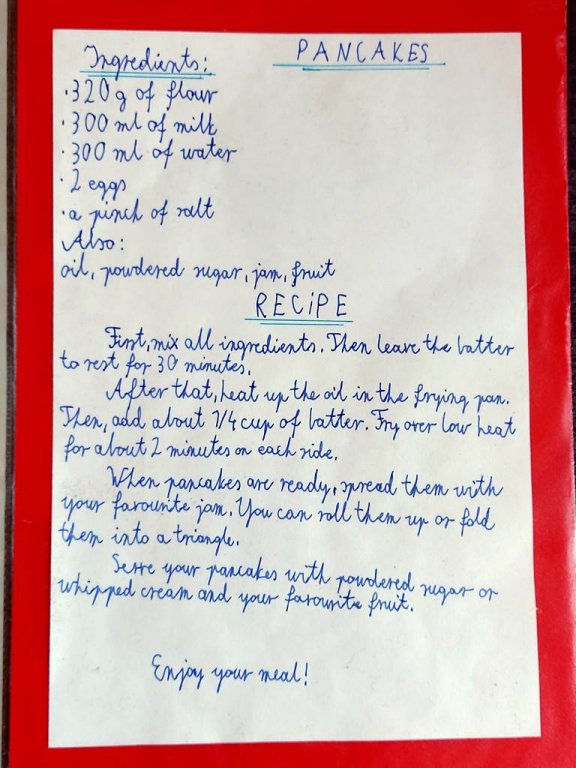 PANCAKES
Ingredients:
· 320 g of flour
· 300 ml of milk
· 300 ml of water
· 2 eggs
· a pinch of salt
Also:
oil, powdered sugar, jam, fruit
RECiPE
First, mix all ingredients. Then leave the batter
to rest for 30 minutes.
After that, heat up the oil in the frying pan.
Then, add about 1/4 cup of batter. Fry over low heat
for about 2 minutes on each side.
When pancakes are ready, spread them with
your favourite jam. You can roll them up or fold
them into a triangle.
Serve your pancakes with powdered sugar or
whipped cream and your favourite fruit.
Enjoy your meal!